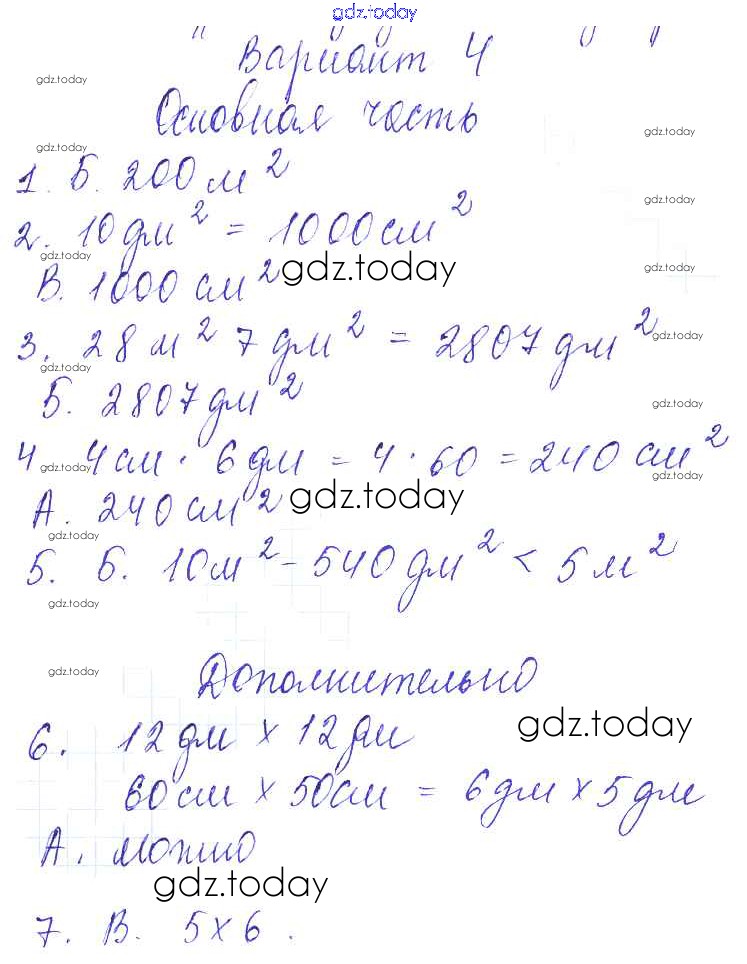 gdz.today
Вариант 4
gdz.today
Основная часть
gdz.today
gdz.today
1. Б. 200 м²
gdz.today
2. 10 дм² = 1000 см²
gdz.today
В. 1000 см² gdz.today
gdz.today
3. 28 м² 7 дм² = 2807 дм²
gdz.today
gdz.today
Б. 2807 дм²
gdz.today
4 gdz.today 4 см · 6 дм = 4 · 60 = 240 см²
gdz.today
А. 240 см² gdz.today
gdz.today
5. Б. 10 м² - 540 дм² < 5 м²
gdz.today
gdz.today
Дополнительно
6. 12 дм x 12 дм
gdz.today
60 см x 50 см = 6 дм x 5 дм
А. можно
gdz.today
7. В. 5 x 6.